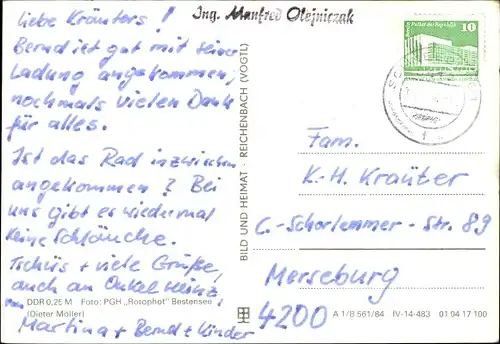 Liebe Kräuters!
Bernd ist gut mit seiner
Ladung angekommen,
nochmals vielen Dank
für alles.
Ist das Rad inzwischen
angekommen? Bei
uns gibt es wiedermal
keine Schläuche.
Tschüs + viele Grüße,
auch an Onkel Heinz,
von
Martina + Bernd + Kinder
DDR 0,25 M Foto: PGH „Rotophot" Bestensee
(Dieter Möller)
Ing. Manfred Olejniczak
BILD UND HEIMAT · REICHENBACH (VOGTL)
Palast der Republik
10
Fam.
K.-H. Kräuter
C.-Schorlemmer-Str. 89
Merseburg
4200
A 1/B 561/84 IV-14-483 01 04 17 100